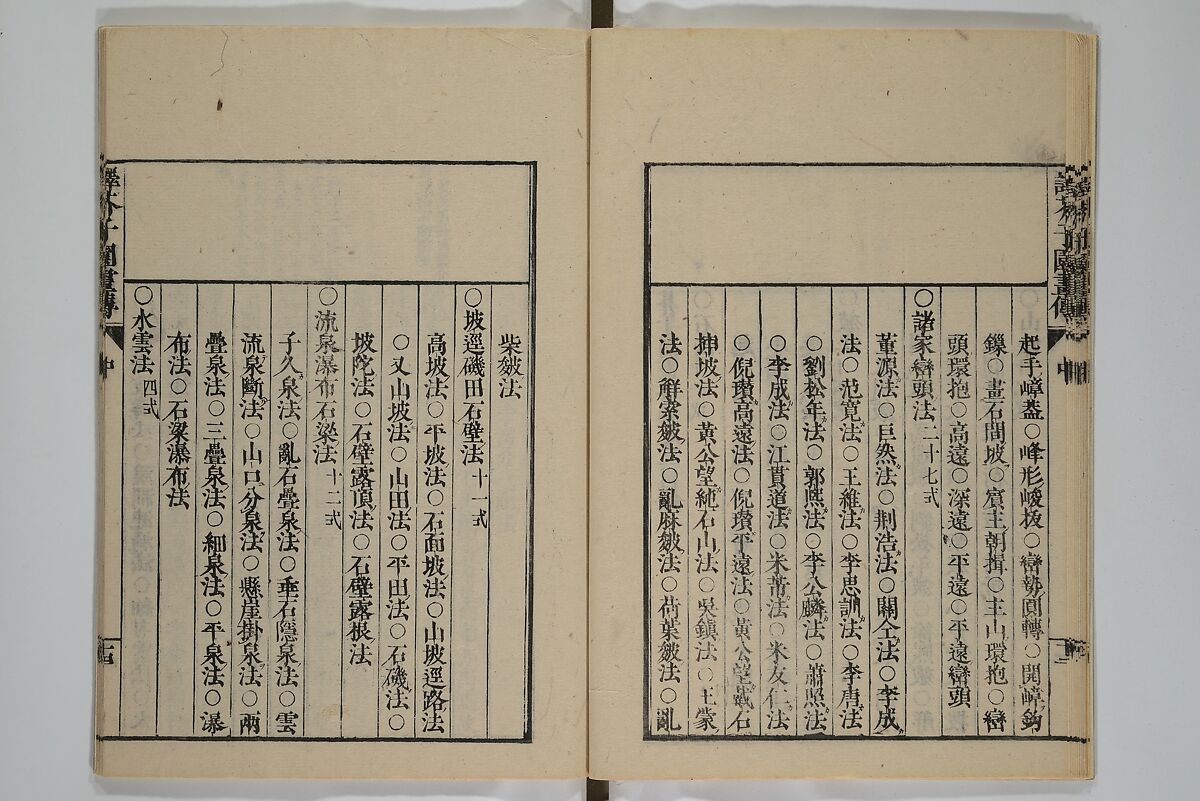 起手嶂蓋○峰形峻拔○巒勢圓轉○開嶂鈎
鏁○畫石間坡○賓主朝揖○主山環抱○巒
頭環抱○高遠○深遠○平遠○平遠巒頭
○諸家巒頭法二十七式
董源法○巨然法○荆浩法○關仝法○李成
法○范寬法○王維法○李思訓法○李唐法
○劉松年法○郭熙法○李公麟法○蕭照法
○李成法○江貫道法○米芾法○米友仁法
○倪瓚高遠法○倪瓚平遠法○黃公望戴石
抻坡法○黃公望純石山法○吳鎮法○王蒙
法○解索皴法○亂麻皴法○荷葉皴法○亂
柴皴法
○坡逕磯田石壁法十一式
高坡法○平坡法○石面坡法○山坡逕路法
○又山坡法○山田法○平田法○石磯法○
坡陀法○石壁露頂法○石壁露根法
○流泉瀑布石梁法十二式
子久泉法○亂石疊泉法○垂石隱泉法○雲
流泉斷法○山口分泉法○懸崖掛泉法○兩
疊泉法○三疊泉法○細泉法○平泉法○瀑
布法○石梁瀑布法
○水雲法四式
譯芥子園畫傳
中